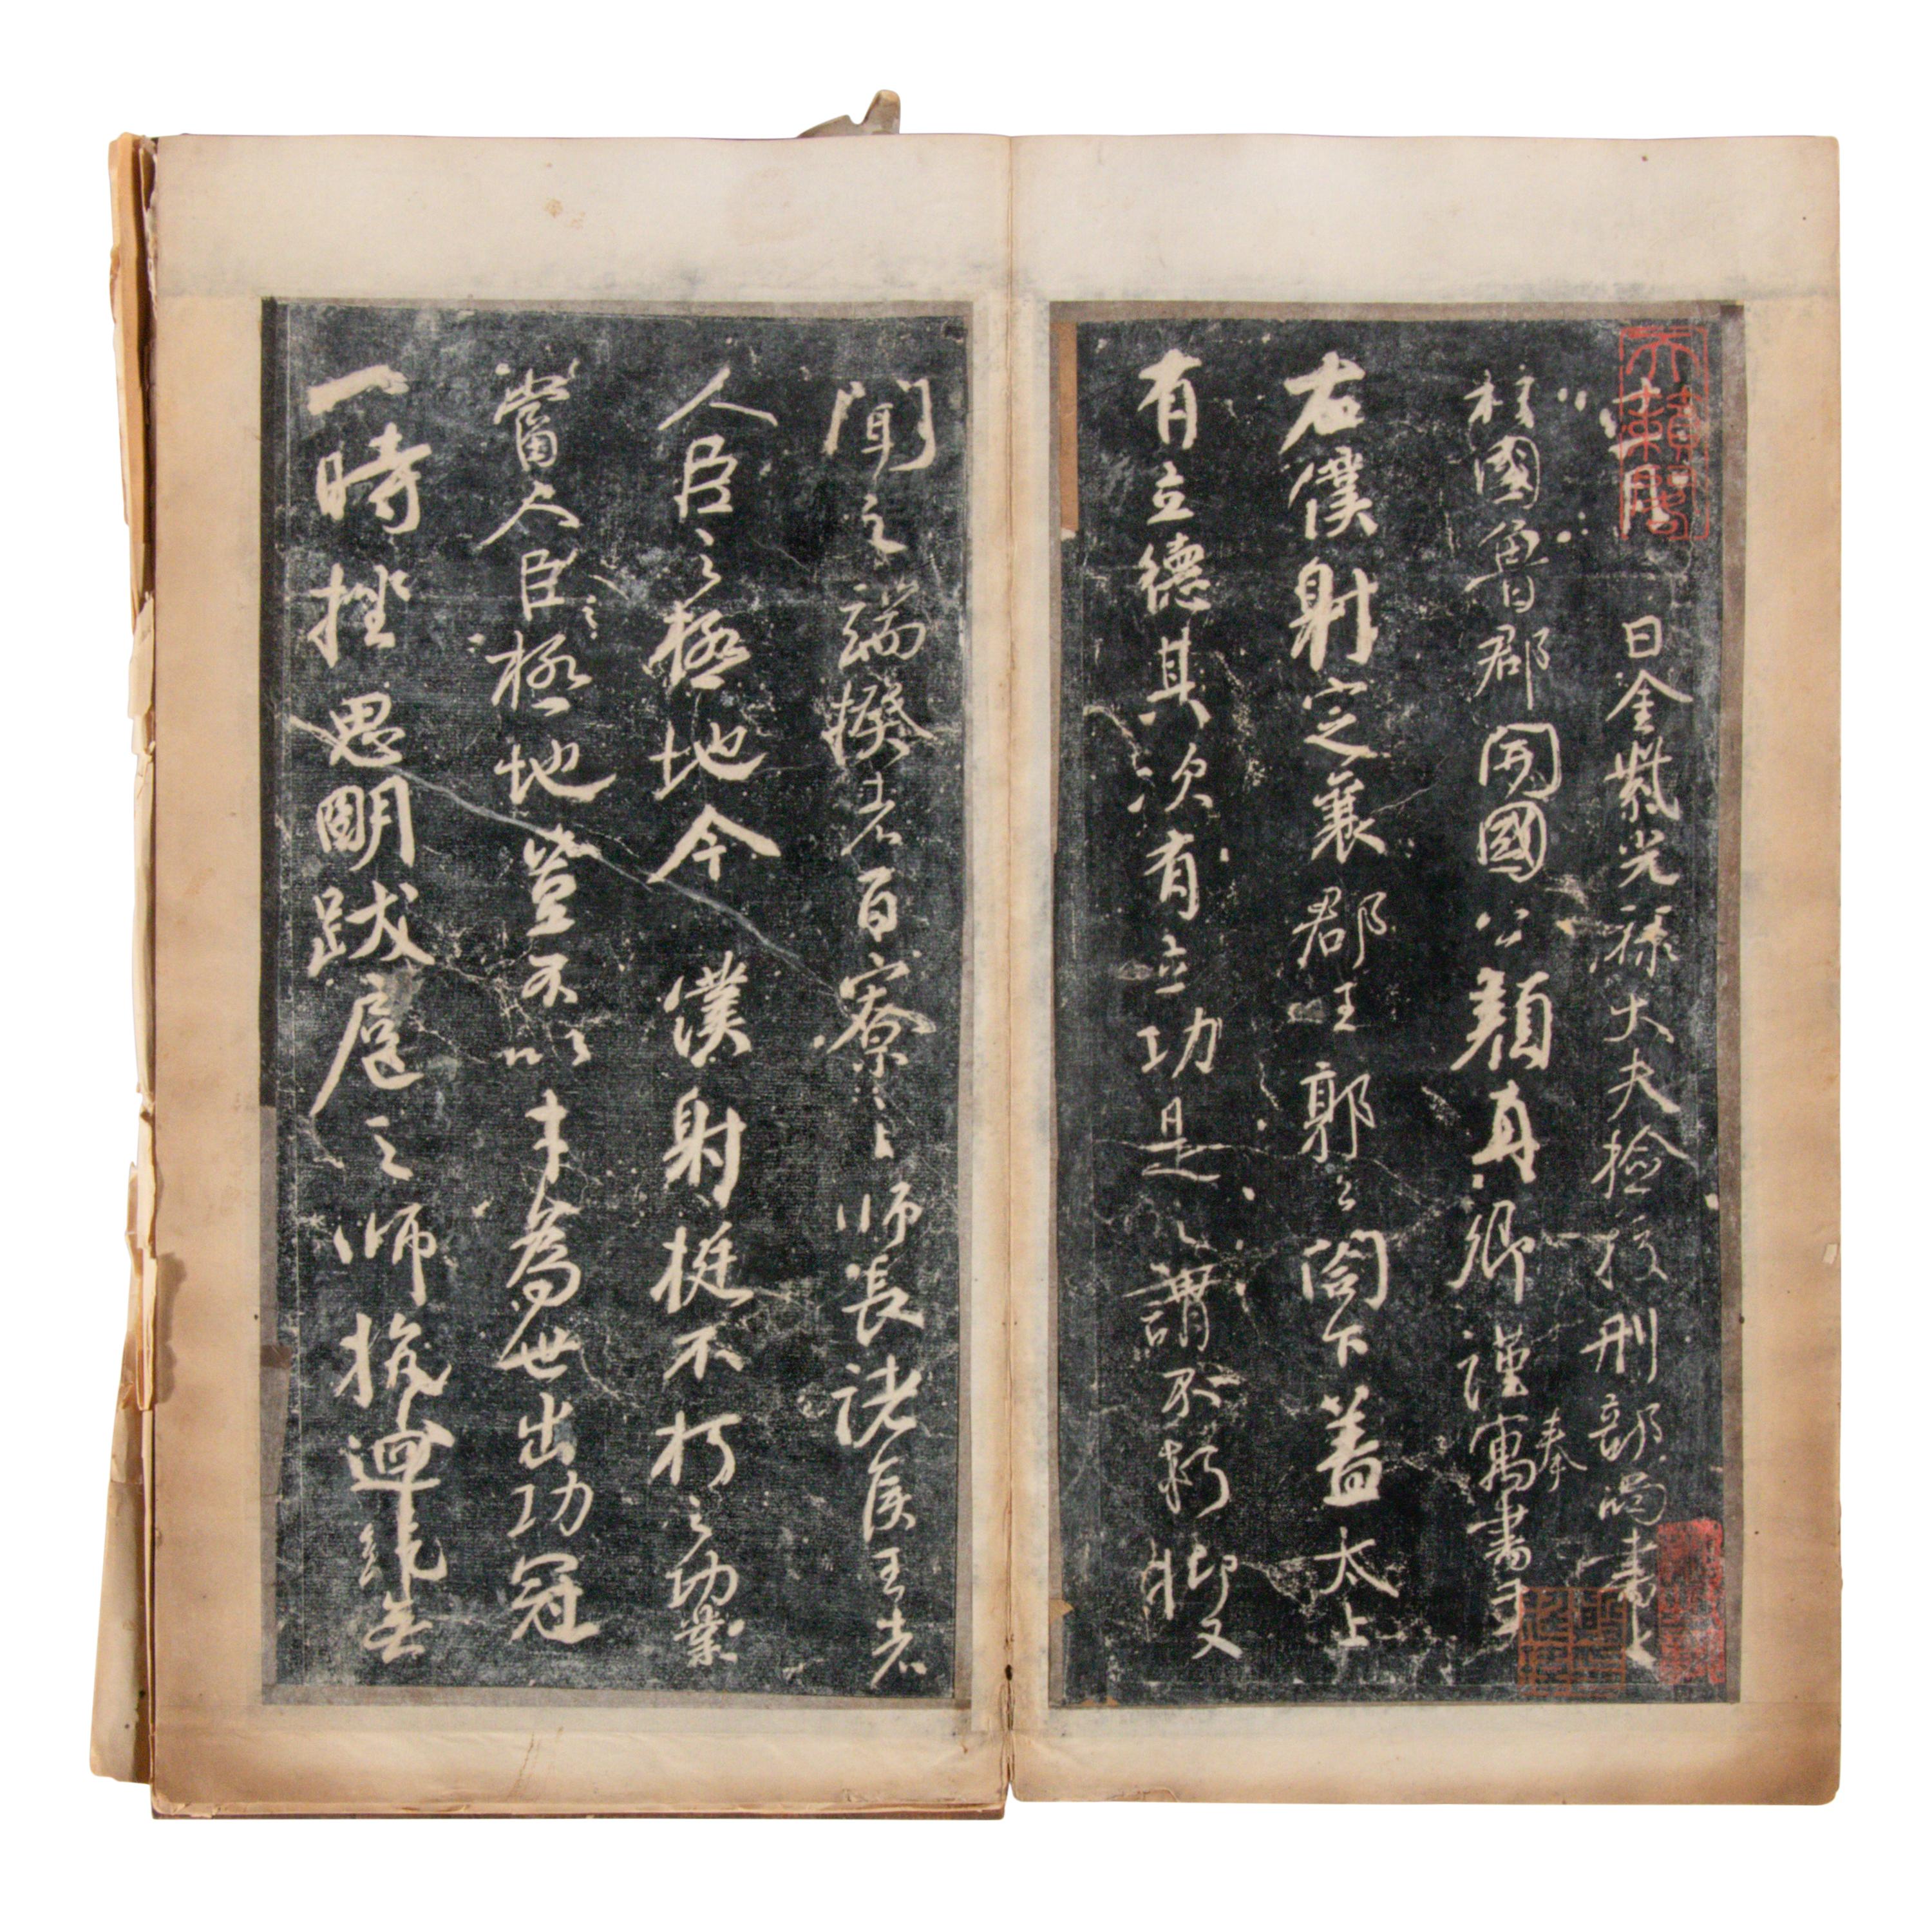 月 日金紫光祿大夫檢校刑部尚書上
柱國魯郡開國公顏真卿謹奉寓書于
右僕射定襄郡王郭公閤下蓋太上
有立德其次有立功是之謂不朽抑又
聞之端揆者百寮之師長諸侯王者
人臣之極地今僕射挺不朽之功業
當人臣之極地豈不以才為世出功冠
一時挫思明跋扈之師抗迴紇無
天籟閣